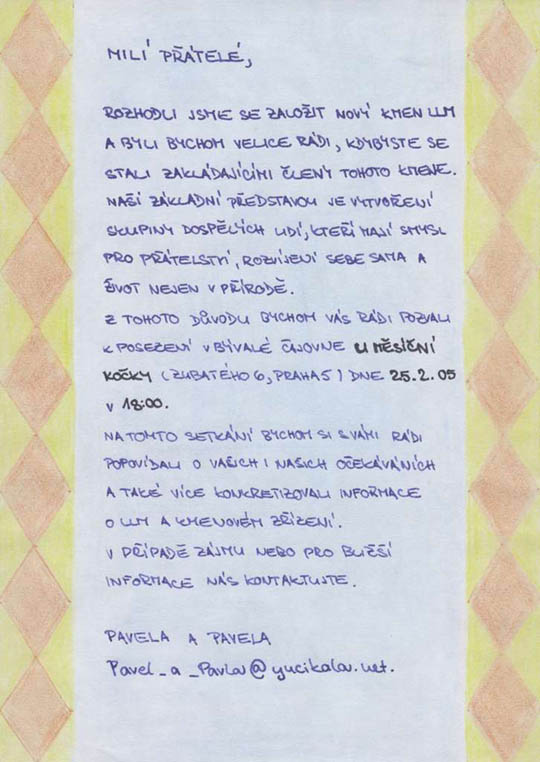 MILÍ PŘÁTELÉ,
ROZHODLI JSME SE ZALOŽIT NOVÝ KMEN LLM
A BYLI BYCHOM VELICE RÁDI, KDYBYSTE SE
STALI ZAKLÁDAJÍCÍMI ČLENY TOHOTO KMENE.
NAŠÍ ZÁKLADNÍ PŘEDSTAVOU JE VYTVOŘENÍ
SKUPINY DOSPĚLÝCH LIDÍ, KTEŘÍ MAJÍ SMYSL
PRO PŘÁTELSTVÍ, ROZVÍJENÍ SEBE SAMA A
ŽIVOT NEJEN V PŘÍRODĚ.
Z TOHOTO DŮVODU BYCHOM VÁS RÁDI POZVALI
K POSEZENÍ V BÝVALÉ ČAJOVNE U MĚSÍČNÍ
KOČKY (ZUBATÉHO 6, PRAHA 5) DNE 25.2.05
V 18:00.
NA TOMTO SETKÁNÍ BYCHOM SI S VÁMI RÁDI
POPOVÍDALI O VAŠICH I NAŠICH OČEKÁVÁNÍCH
A TAKÉ VÍCE KONKRETIZOVALI INFORMACE
O LLM A KMENOVÉM ZŘÍZENÍ.
V PŘÍPADĚ ZÁJMU NEBO PRO BLIŽŠÍ
INFORMACE NÁS KONTAKTUJTE.
PAVELA A PAVELA
Pavel_a_Pavla@yucikala.net.